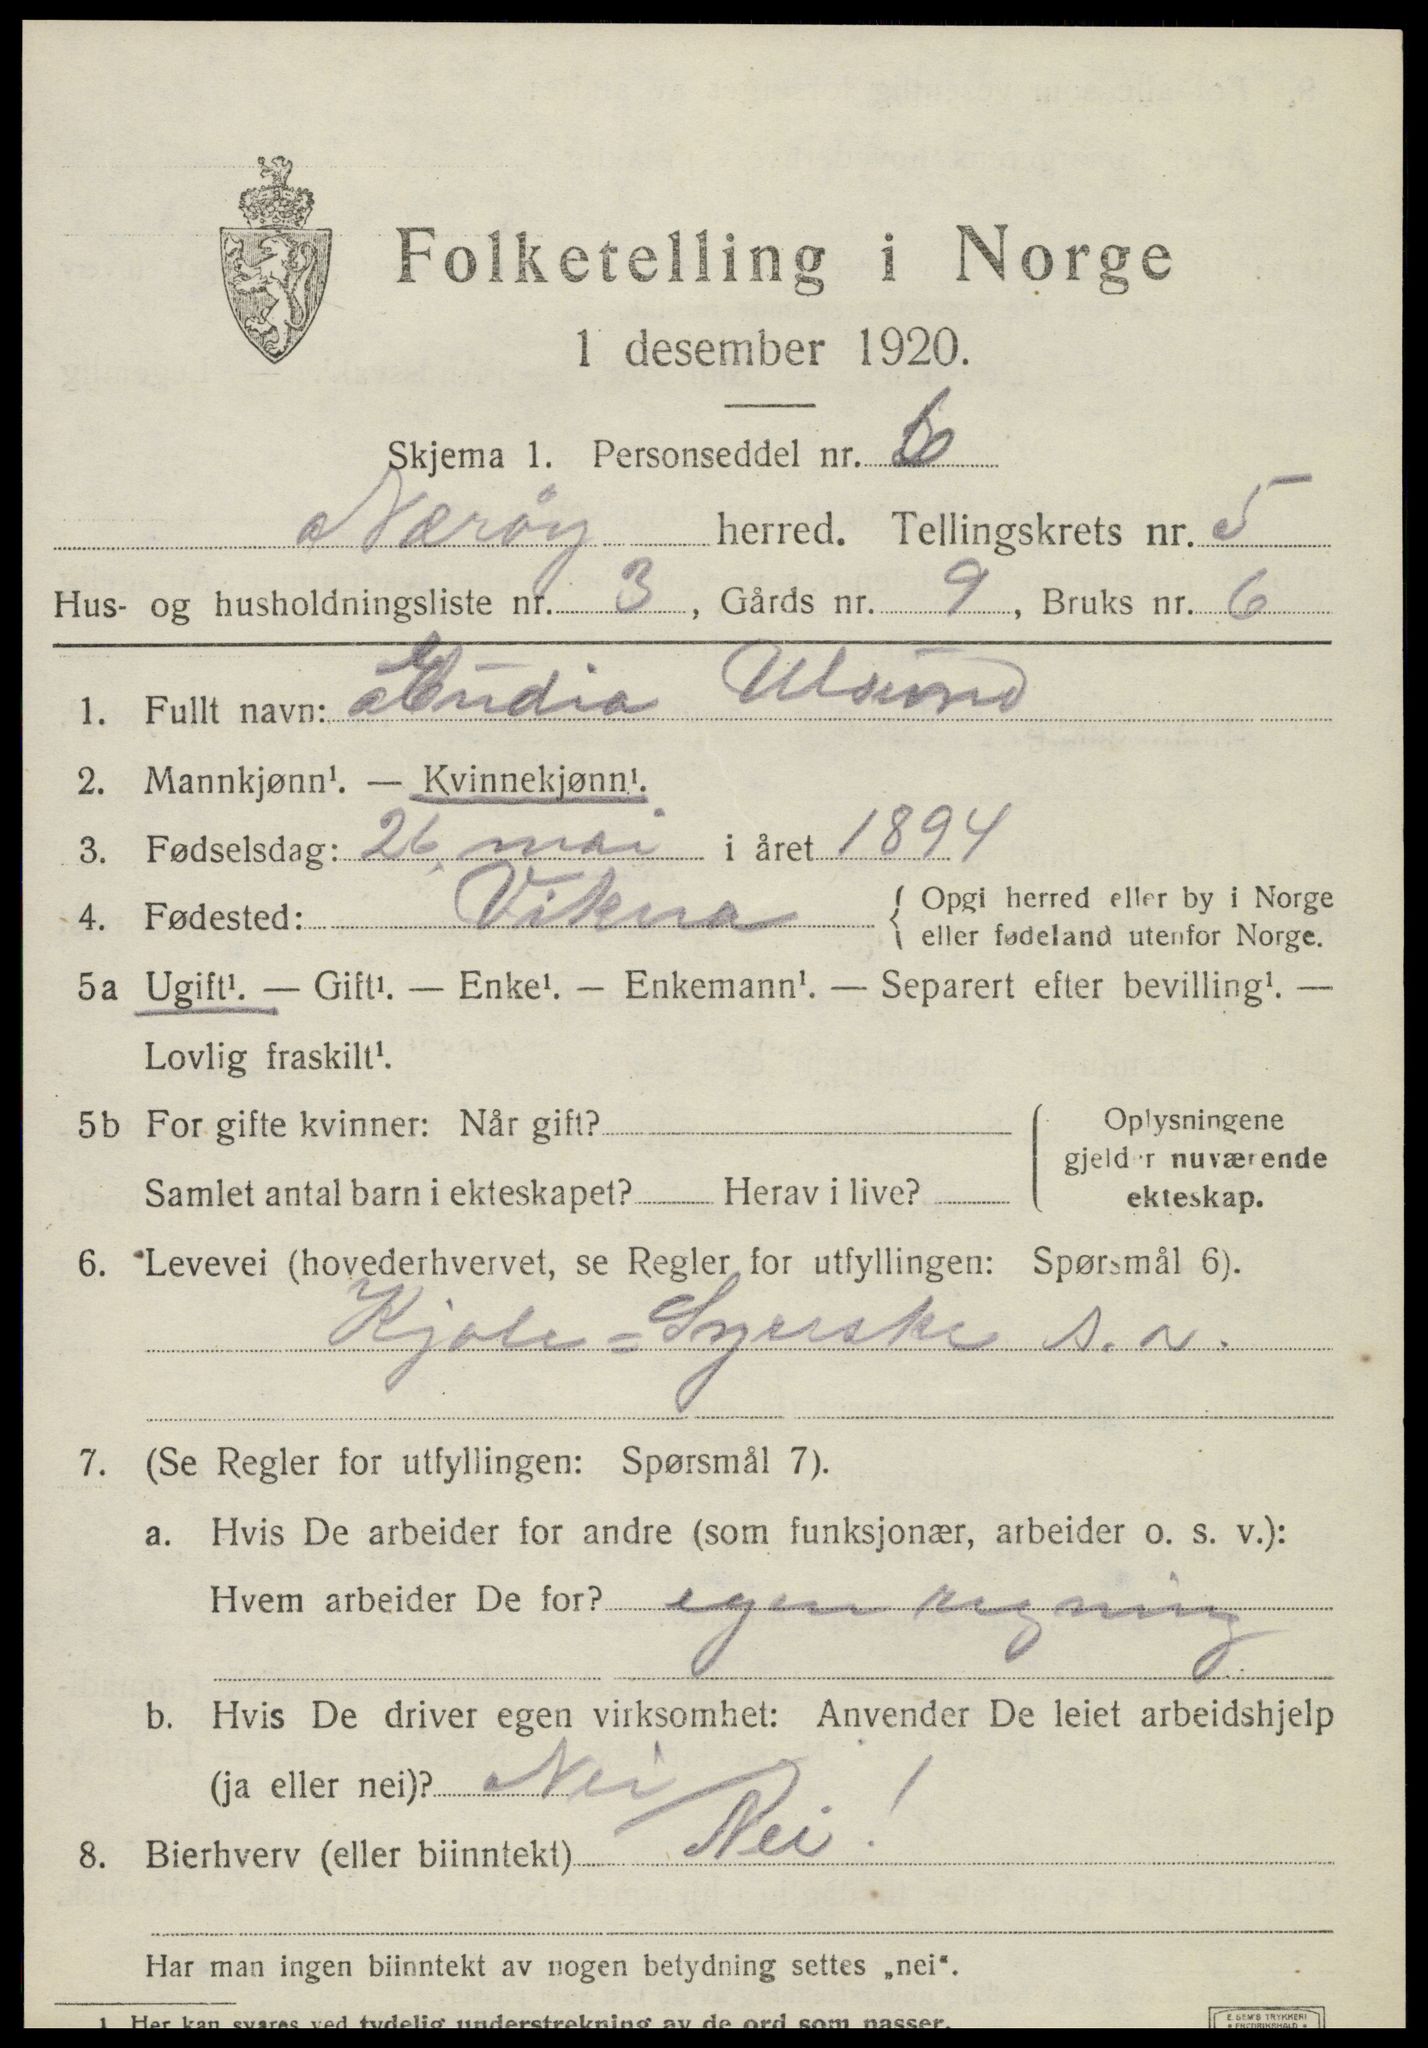 Folketelling i Norge
1 desember 1920.
Skjema 1. Personseddel nr. 6
Nærøy herred. Tellingskrets nr. 5
Hus- og husholdningsliste nr. 3, Gårds nr. 9, Bruks nr. 6
1. Fullt navn: Ulsund
2. Mannkjønn¹. — Kvinnekjønn¹.
3. Fødselsdag: 26. mai i året 1894
4. Fødested: Vikna { Opgi herred eller by i Norge
eller fødeland utenfor Norge.
5a Ugift¹. — Gift¹. — Enke¹. — Enkemann¹. — Separert efter bevilling¹. —
Lovlig fraskilt¹.
5b For gifte kvinner: Når gift?
Samlet antal barn i ekteskapet? Herav i live?
Oplysningene
gjelder nuværende
ekteskap.
6. Levevei (hovederhvervet, se Regler for utfyllingen: Spørsmål 6).
Kjole=Syerske s. a.
7. (Se Regler for utfyllingen: Spørsmål 7).
a. Hvis De arbeider for andre (som funksjonær, arbeider o. s. v.):
Hvem arbeider De for? egen regning
b. Hvis De driver egen virksomhet: Anvender De leiet arbeidshjelp
(ja eller nei)? Nei
8. Bierhverv (eller biinntekt) Nei!
Har man ingen biinntekt av nogen betydning settes „nei“.
1 Her kan svares ved tydelig understrekning av de ord som passer.
E. SEM'S TRYKKERI
• FREDRIKSHALD •